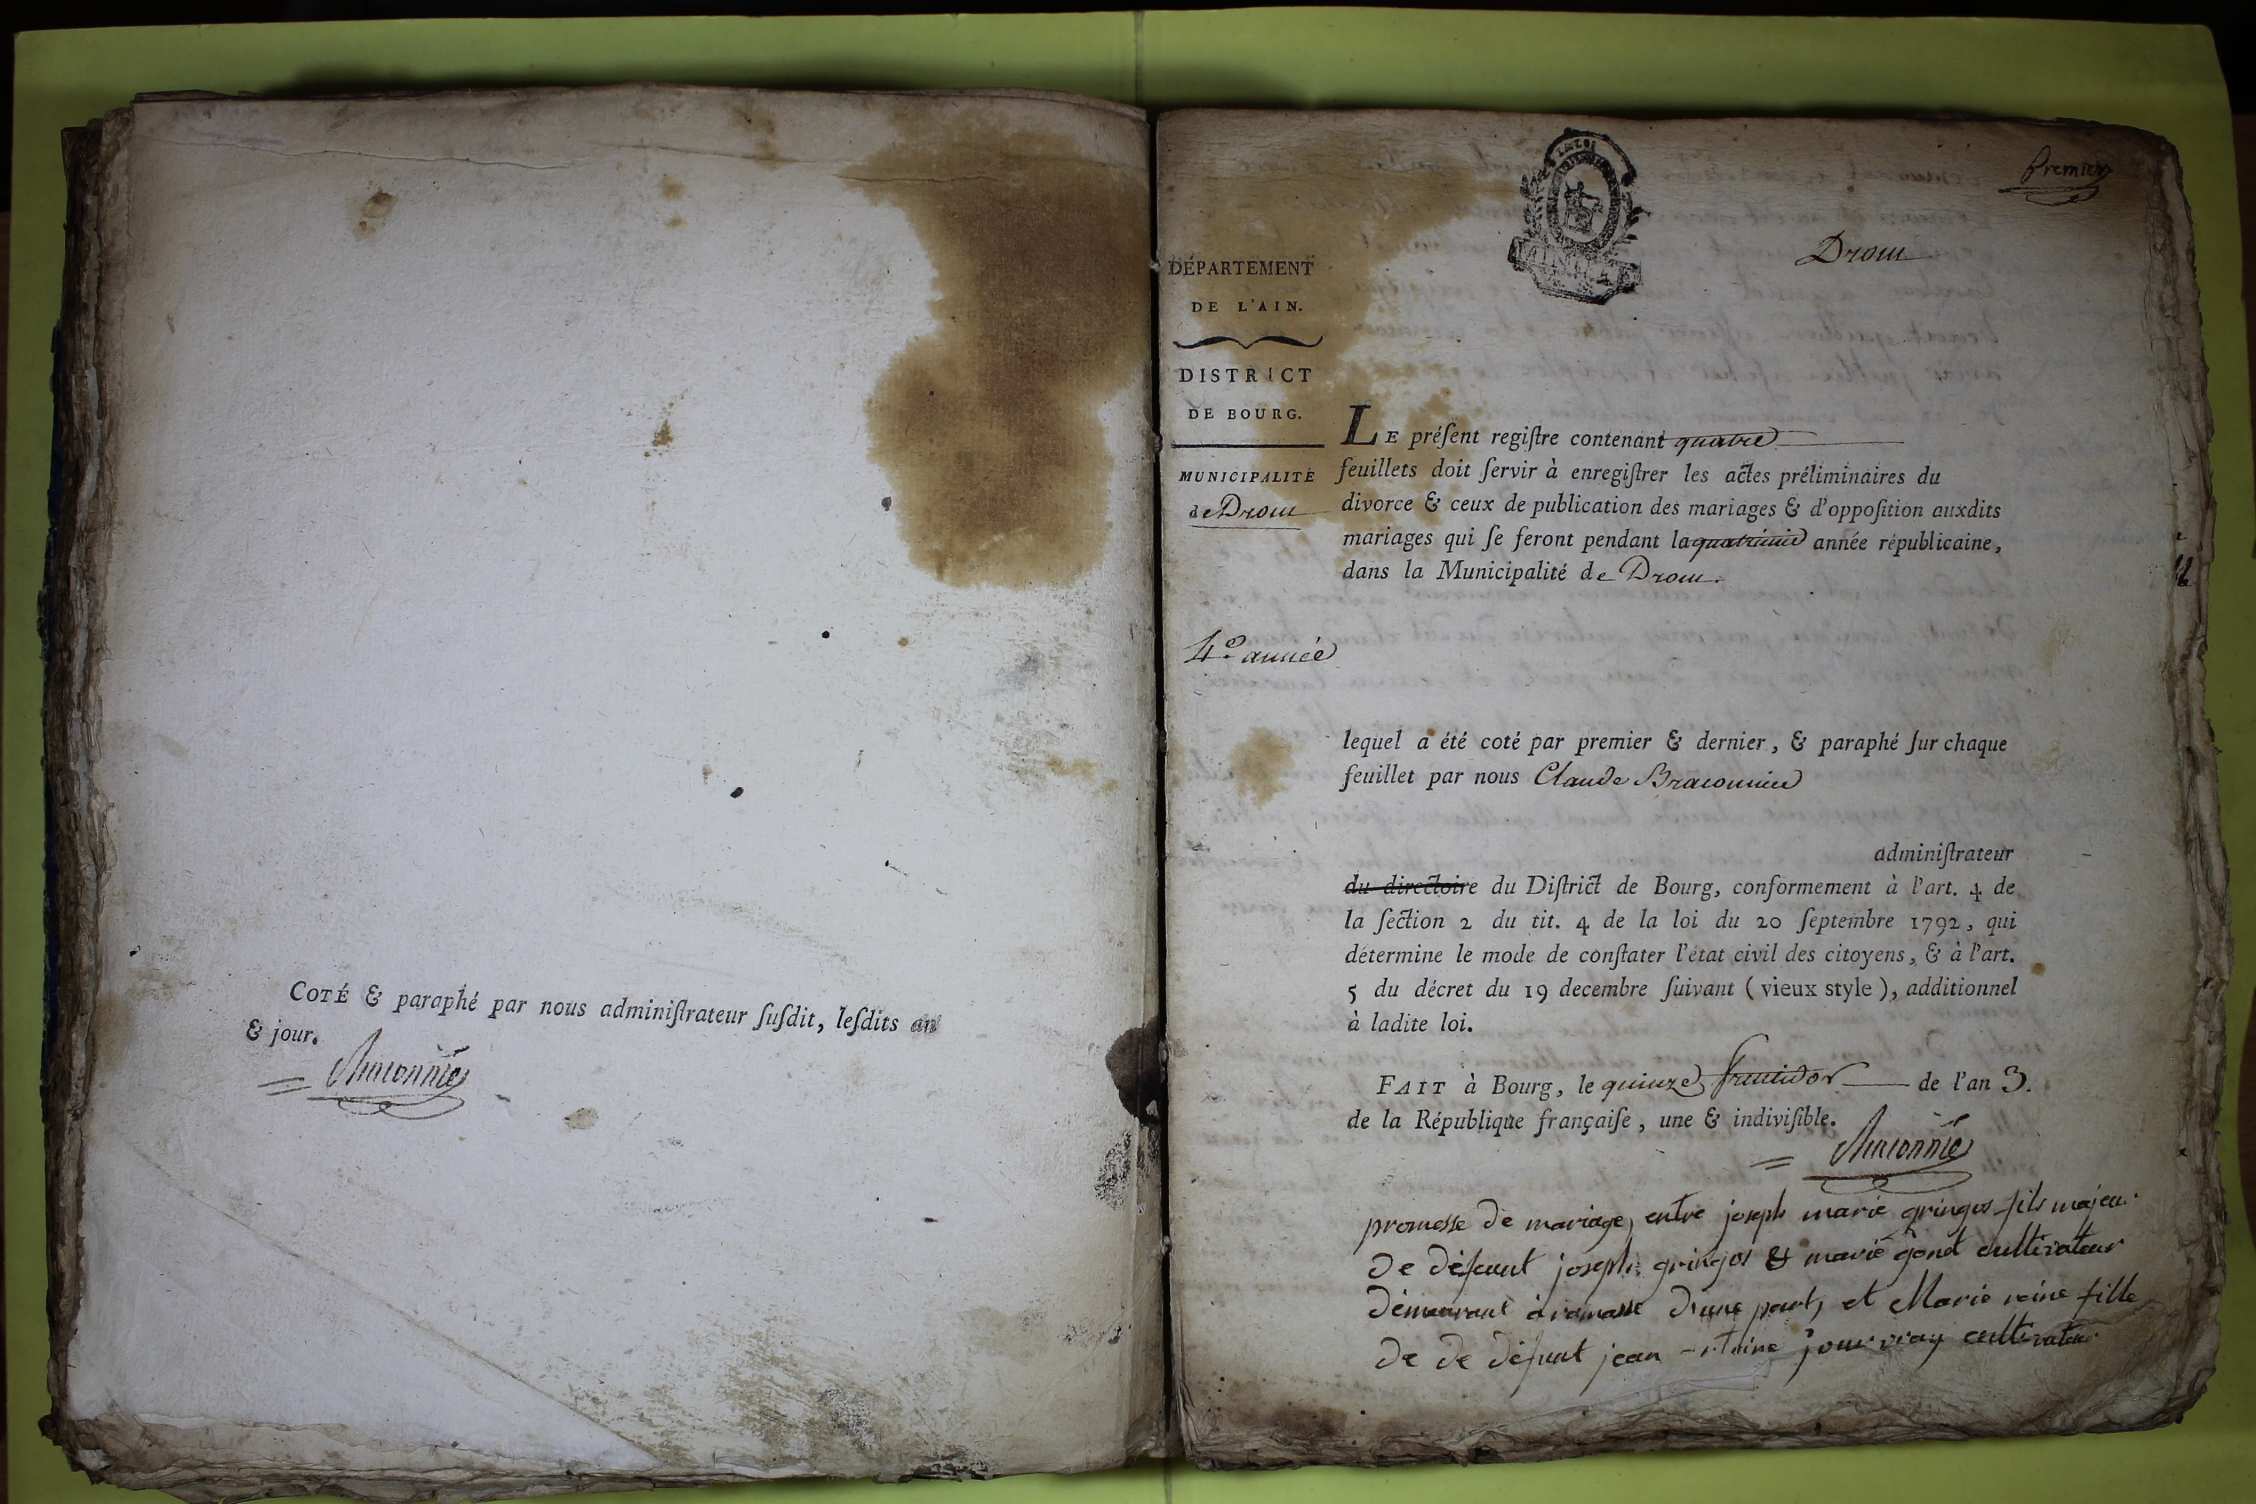 COTÉ & paraphé par nous administrateur susdit, lesdits an
& jour.
Braconnié
Premier
LA LOI
Drom
DÉPARTEMENT
DE L'AIN.
DISTRICT
DE BOURG.
MUNICIPALITÉ
de Drom
LE présent registre contenant quatre
feuillets doit servir à enregistrer les actes préliminaires du
divorce & ceux de publication des mariages & d'opposition auxdits
mariages qui se feront pendant la quatrieme année républicaine,
dans la Municipalité de Drom.
4e année
lequel a été coté par premier & dernier, & paraphé sur chaque
feuillet par nous Claude Braconnier
administrateur
du directoire du District de Bourg, conformement à l'art. 4 de
la section 2 du tit. 4 de la loi du 20 septembre 1792, qui
détermine le mode de constater l'état civil des citoyens, & à l'art.
5 du décret du 19 decembre suivant (vieux style), additionnel
à ladite loi.
FAIT à Bourg, le quinze fructidor de l'an 3.
de la République française, une & indivisible.
Braconnié
promesse de mariage, entre joseph marie gringos fils majeur
de défeunt joseph gringos & marie gond cultivateur
démeurant à ramasse d'une part, et Marie reine fille
de de défunt jean jouvray cultivateur